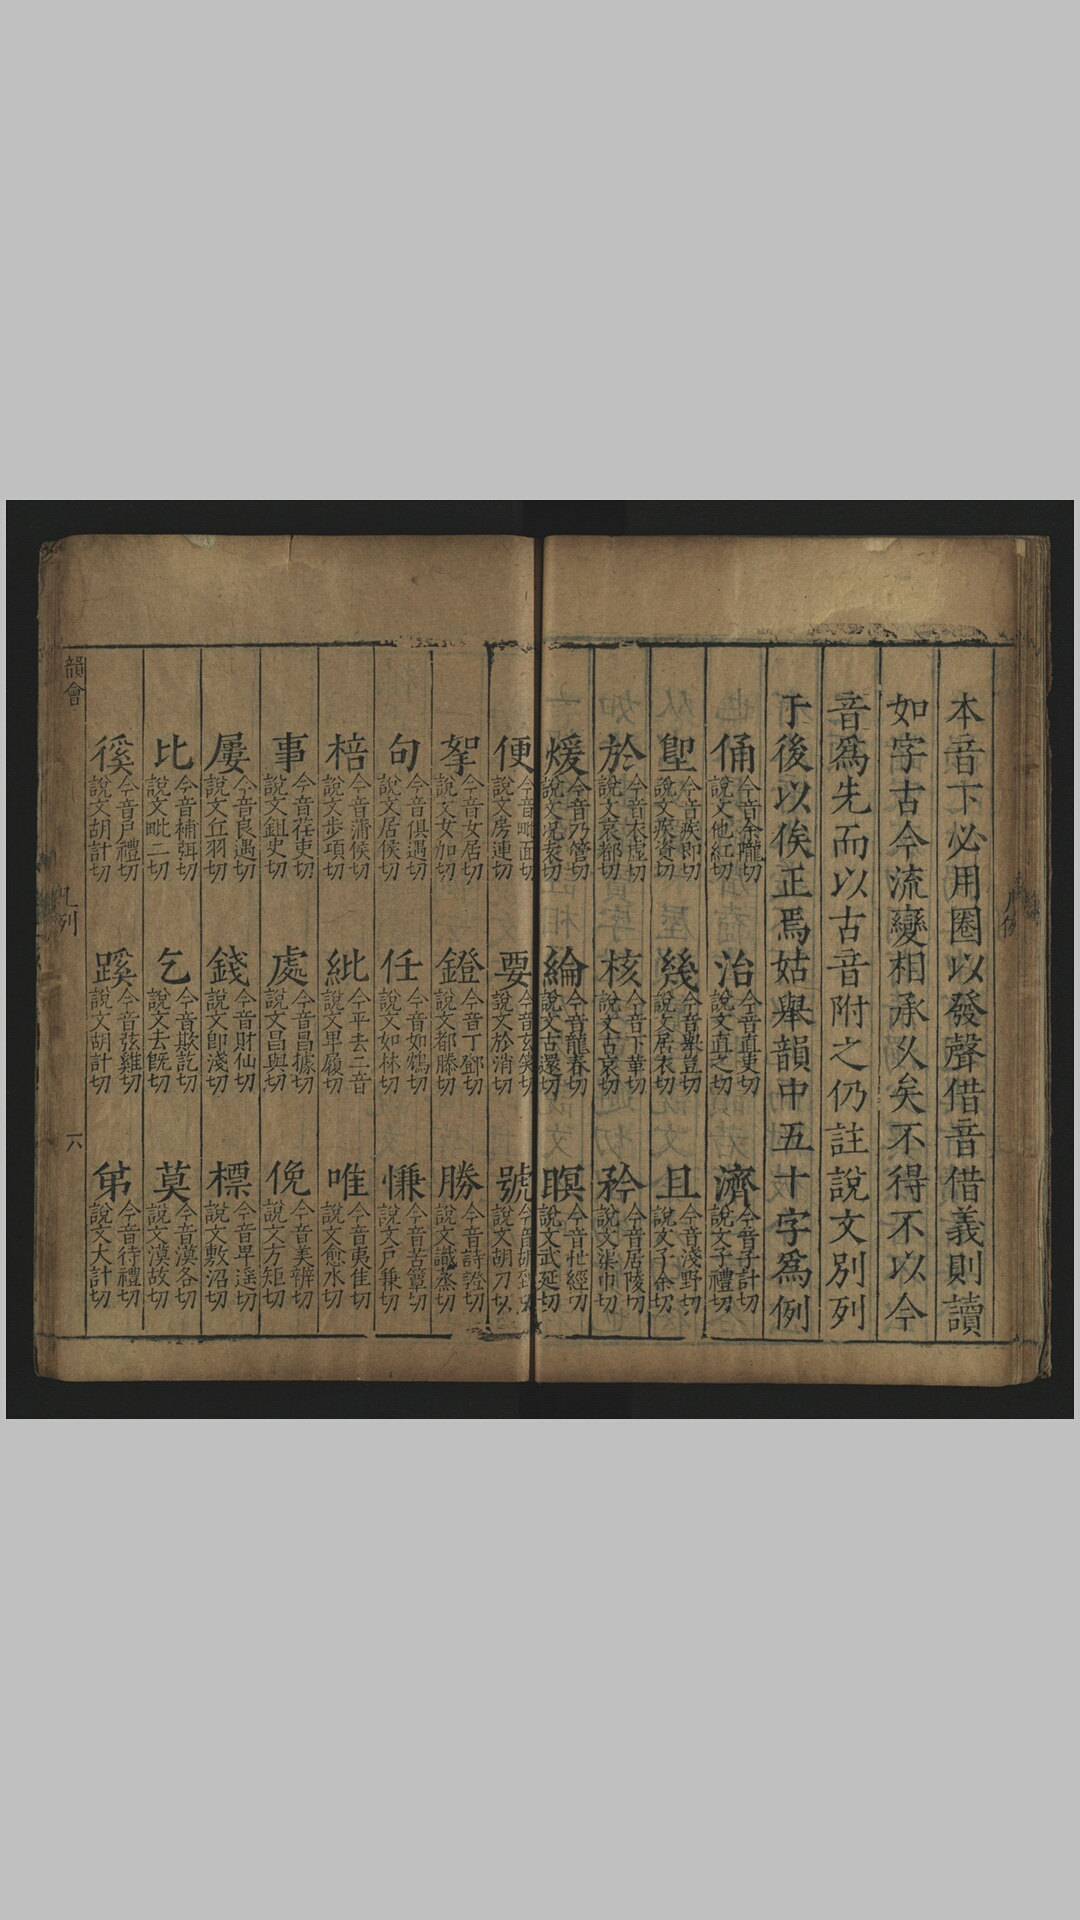 本音下必用圈以發聲借音借義則讀
如字古今流變相承久矣不得不以今
音爲先而以古音附之仍註說文別列
于後以俟正焉姑舉韻中五十字爲例
俑今音余隴切說文他紅切 治今音直吏切說文直之切 濟今音子計切說文子禮切
聖今音疾即切說文疾資切 幾今音舉豈切說文居衣切 且今音淺野切說文子余切
於今音衣虛切說文哀都切 核今音下革切說文古哀切 矜今音居陵切說文渠巾切
煖今音乃管切說文況袁切 綸今音龍春切說文古還切 瞑今音忙經切說文武延切
便今音毗面切說文房連切 要今音笑切說文於消切 號今音胡到切說文胡刀切
挐今音女居切說文女加切 鐙今音丁鄧切說文都滕切 勝今音詩證切說文識蒸切
句今音俱遇切說文居侯切 任今音如鴆切說文如林切 慊今音苦簟切說文戶兼切
棓今音蒲侯切說文步項切 紕今平去二音說文卑履切 唯今音夷隹切說文愈水切
事今音茬吏切說文鉏史切 處今音昌據切說文昌與切 俛今音美辨切說文方矩切
屢今音良遇切說文丘羽切 錢今音財仙切說文即淺切 標今音卑遙切說文敷沼切
比今音補弭切說文毗二切 乞今音欺訖切說文去旣切 莫今音漠各切說文漠故切
徯今音戶禮切說文胡計切 蹊今音弦雞切說文胡計切 弟今音待禮切說文大計切
韻會
凡列
六